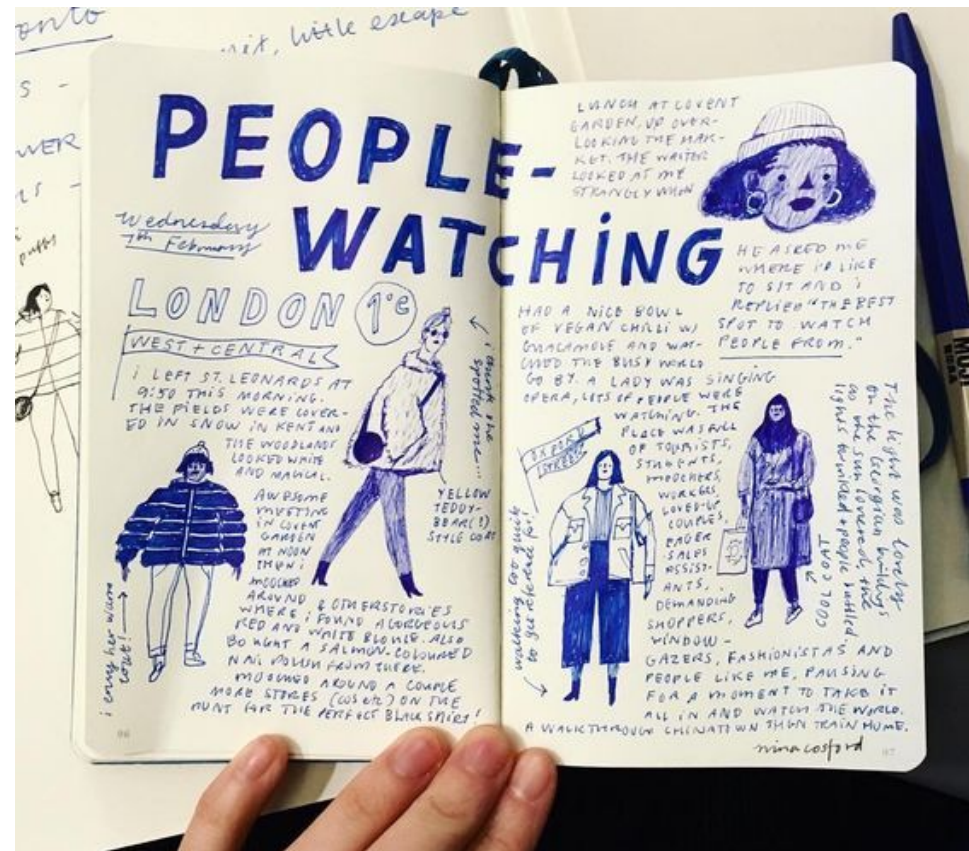 PEOPLE-
WATCHING
Wednesday
7th February
LONDON
1°c
WEST + CENTRAL
i LEFT ST. LEONARDS AT
9:50 THIS MORNING.
THE FIELDS WERE COVER-
ED IN SNOW IN KENT AND
THE WOODLANDS
LOOKED WHITE
AND MAGICAL.
AWESOME
MEETING
IN COVENT
GARDEN
AT NOON
THEN i
MOOCHED
AROUND & OTHER STORIES
WHERE i FOUND A GORGEOUS
RED AND WHITE BLOUSE. ALSO
BOUGHT A SALMON-COLOURED
NAIL POLISH FROM THERE.
MOOCHED AROUND A COUPLE
MORE STORES (COS etc) ON THE
HUNT FOR THE PERFECT BLACK SHIRT!
i envy her warm
coat!
i think she
spotted me...
YELLOW
TEDDY-
BEAR(!)
STYLE COAT
96
LUNCH AT COVENT
GARDEN, UP OVER-
LOOKING THE MAR-
KET. THE WAITER
LOOKED AT ME
STRANGELY WHEN
HE ASKED ME
WHERE I'D LIKE
TO SIT AND i
REPLIED "THE BEST
SPOT TO WATCH
PEOPLE FROM."
HAD A NICE BOWL
OF VEGAN CHILLI W/
GUACAMOLE AND WAT-
CHED THE BUSY WORLD
GO BY. A LADY WAS SINGING
OPERA, LOTS OF PEOPLE WERE
WATCHING. THE
PLACE WAS FULL
OF TOURISTS,
STUDENTS,
MOOCHERS,
WORKERS,
LOVED-UP
COUPLES,
EAGER
SALES
ASSIST-
ANTS,
DEMANDING
SHOPPERS,
WINDOW-
GAZERS, FASHIONISTAS AND
PEOPLE LIKE ME, PAUSING
FOR A MOMENT TO TAKE IT
ALL IN AND WATCH THE WORLD.
A WALK THROUGH CHINATOWN THEN TRAIN HOME.
OXFORD
STREET
walking too quick
to get
COOL COAT
The light was lovely
on the Georgian buildings
as the sun lowered, the
lights twinkled + people rattled.
nina cosford
97
little escape
MUJI